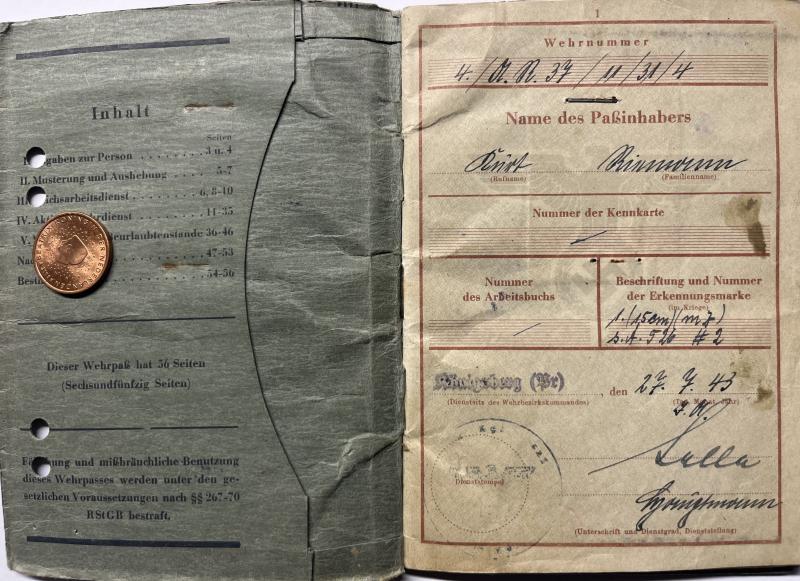 Inhalt
Seiten
gaben zur Person . . . . . . . . 3 u. 4
II. Musterung und Aushebung . . . . . . 5-7
III. ichsarbeitsdienst . . . . . . . . 6, 8-10
IV. Akti dienst . . . . . . . 11-35
V. eurlaubtenstande 36-46
Na 47-53
Besti 54-56
Dieser Wehrpaß hat 56 Seiten
(Sechsundfünfzig Seiten)
Fä ung und mißbräuchliche Benutzung
dieses Wehrpasses werden unter den ge-
setzlichen Voraussetzungen nach §§ 267-70
RStGB bestraft.
1
Wehrnummer
4./A.R.37/11/31/4
Name des Paßinhabers
Kurt Riemann
(Rufname) (Familienname)
Nummer der Kennkarte
Nummer
des Arbeitsbuchs
Beschriftung und Nummer
der Erkennungsmarke
(im Kriege)
1. (15cm) (m Z)
s.A. 526 # 2
Königsberg (Pr) , den 27. 7. 43
(Dienstsitz des Wehrbezirkskommandos) (Tag, Monat, Jahr)
Dienststempel
Hauptmann
(Unterschrift und Dienstgrad, Dienststellung)